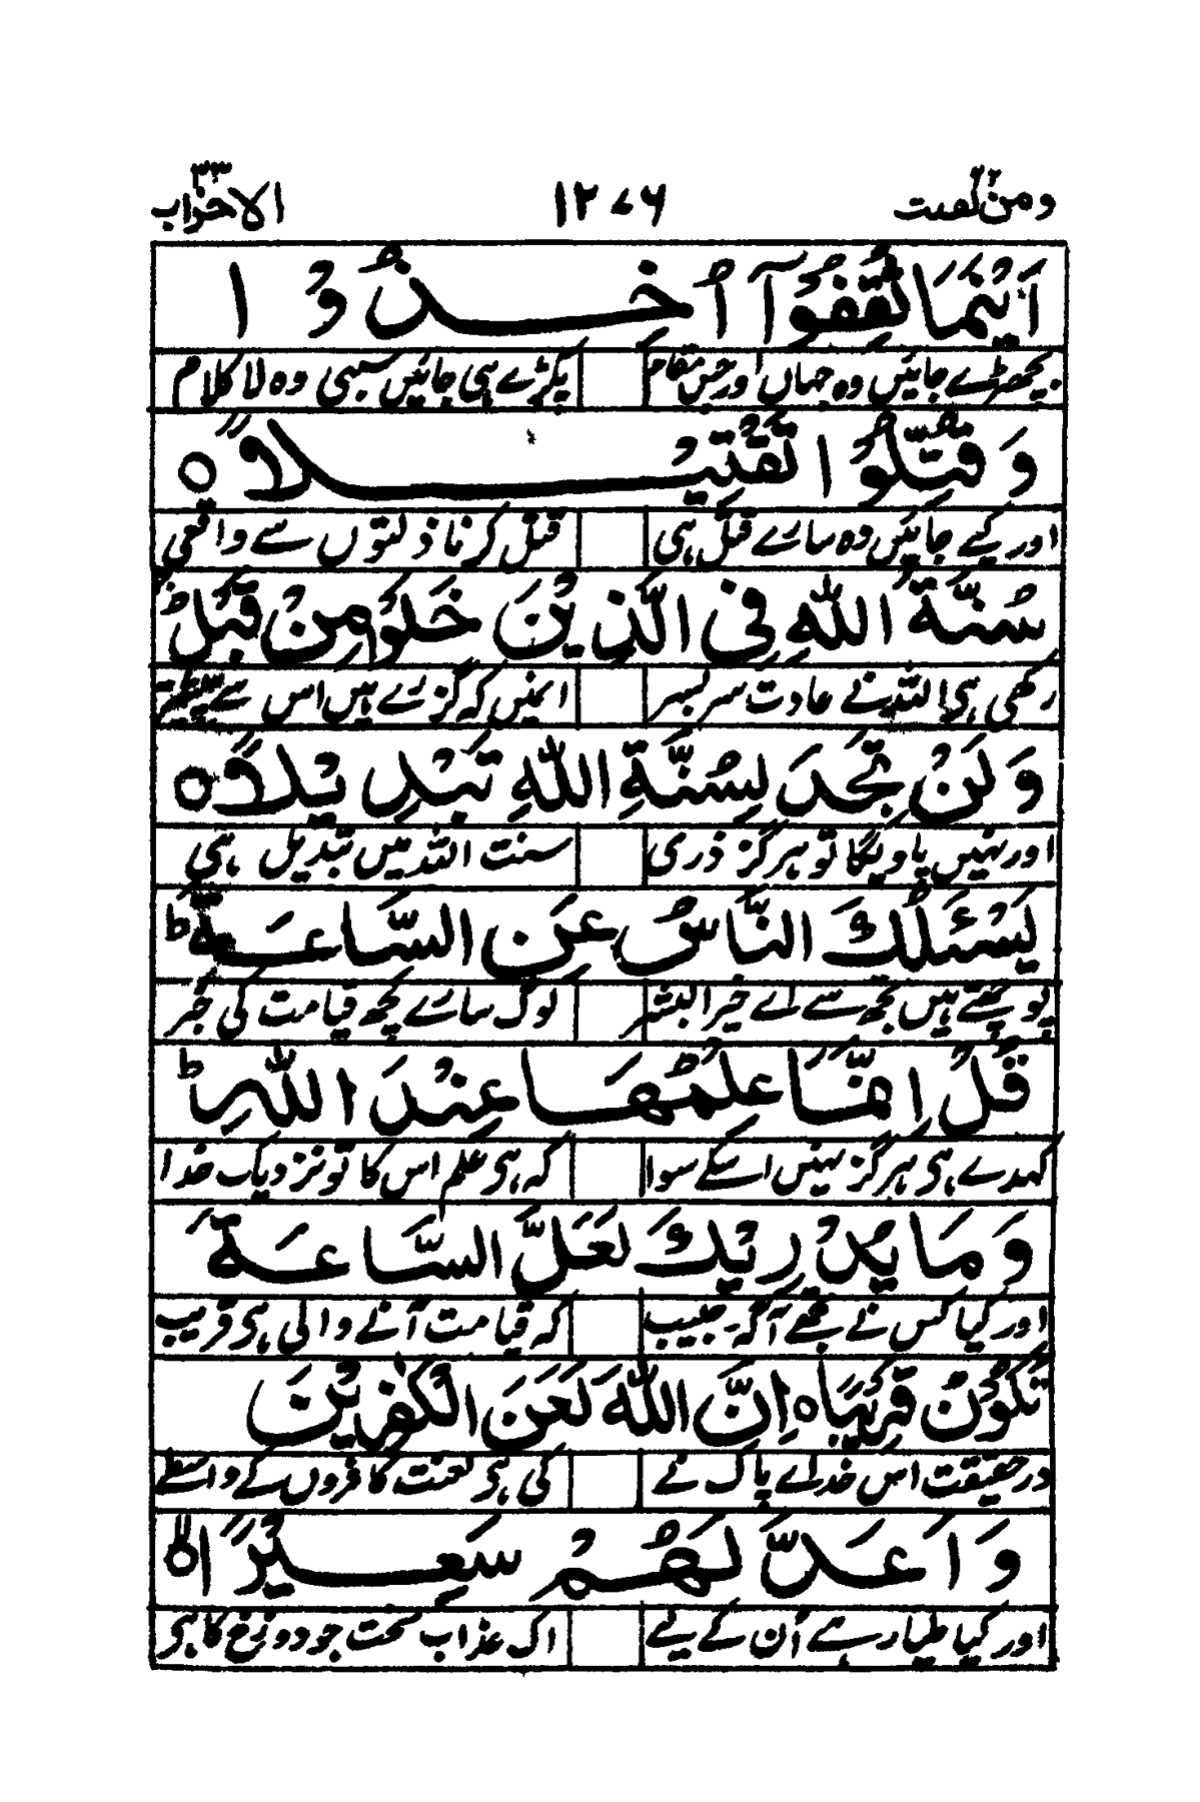 ومن یقنت ۲۲ ۱۲۷۶ الاحزاب ۳۳
اَیْنَمَا ثُقِفُوْۤا اُخِذُوْا
بچھڑے جائیں وہ جہاں اور جس مقام پکڑے ہی جائیں سبھی وہ لا کلام
وَ قُتِّلُوْا تَقْتِیْلًا ۝
اور کیے جائیں وہ سارے قتل ہی قتل کرنا ذلتوں سے واقعی
سُنَّةَ اللّٰهِ فِی الَّذِیْنَ خَلَوْا مِنْ قَبْلُ ۚ
رکھی ہی اللہ نے عادت سربسر انمیں کہ گزرے ہیں اس سے پیشتر
وَ لَنْ تَجِدَ لِسُنَّةِ اللّٰهِ تَبْدِیْلًا ۝
اور نہیں پاویگا تو ہرگز ذری سنت اللہ میں تبدیل ہی
یَسْـَٔلُكَ النَّاسُ عَنِ السَّاعَةِ ؕ
پوچھتے ہیں تجھ سے اے خیر البشر لوگ سارے کچھ قیامت کی خبر
قُلْ اِنَّمَا عِلْمُهَا عِنْدَ اللّٰهِ ؕ
کہدے ہی ہرگز نہیں اسکے سوا کہ ہی علم اس کا تو نزدیک خدا
وَ مَا یُدْرِیْكَ لَعَلَّ السَّاعَةَ
اور کیا کس نے تجھے آگہ حبیب کہ قیامت آنے والی ہی قریب
تَكُوْنُ قَرِیْبًا ۝ اِنَّ اللّٰهَ لَعَنَ الْكٰفِرِیْنَ
در حقیقت اس خدائے پاک نے کی ہی لعنت کافروں کے واسطے
وَ اَعَدَّ لَهُمْ سَعِیْرًا ۝ لا
اور کیا طیار ہے اُن کے لیے اک عذاب سخت جو دوزخ کا ہی